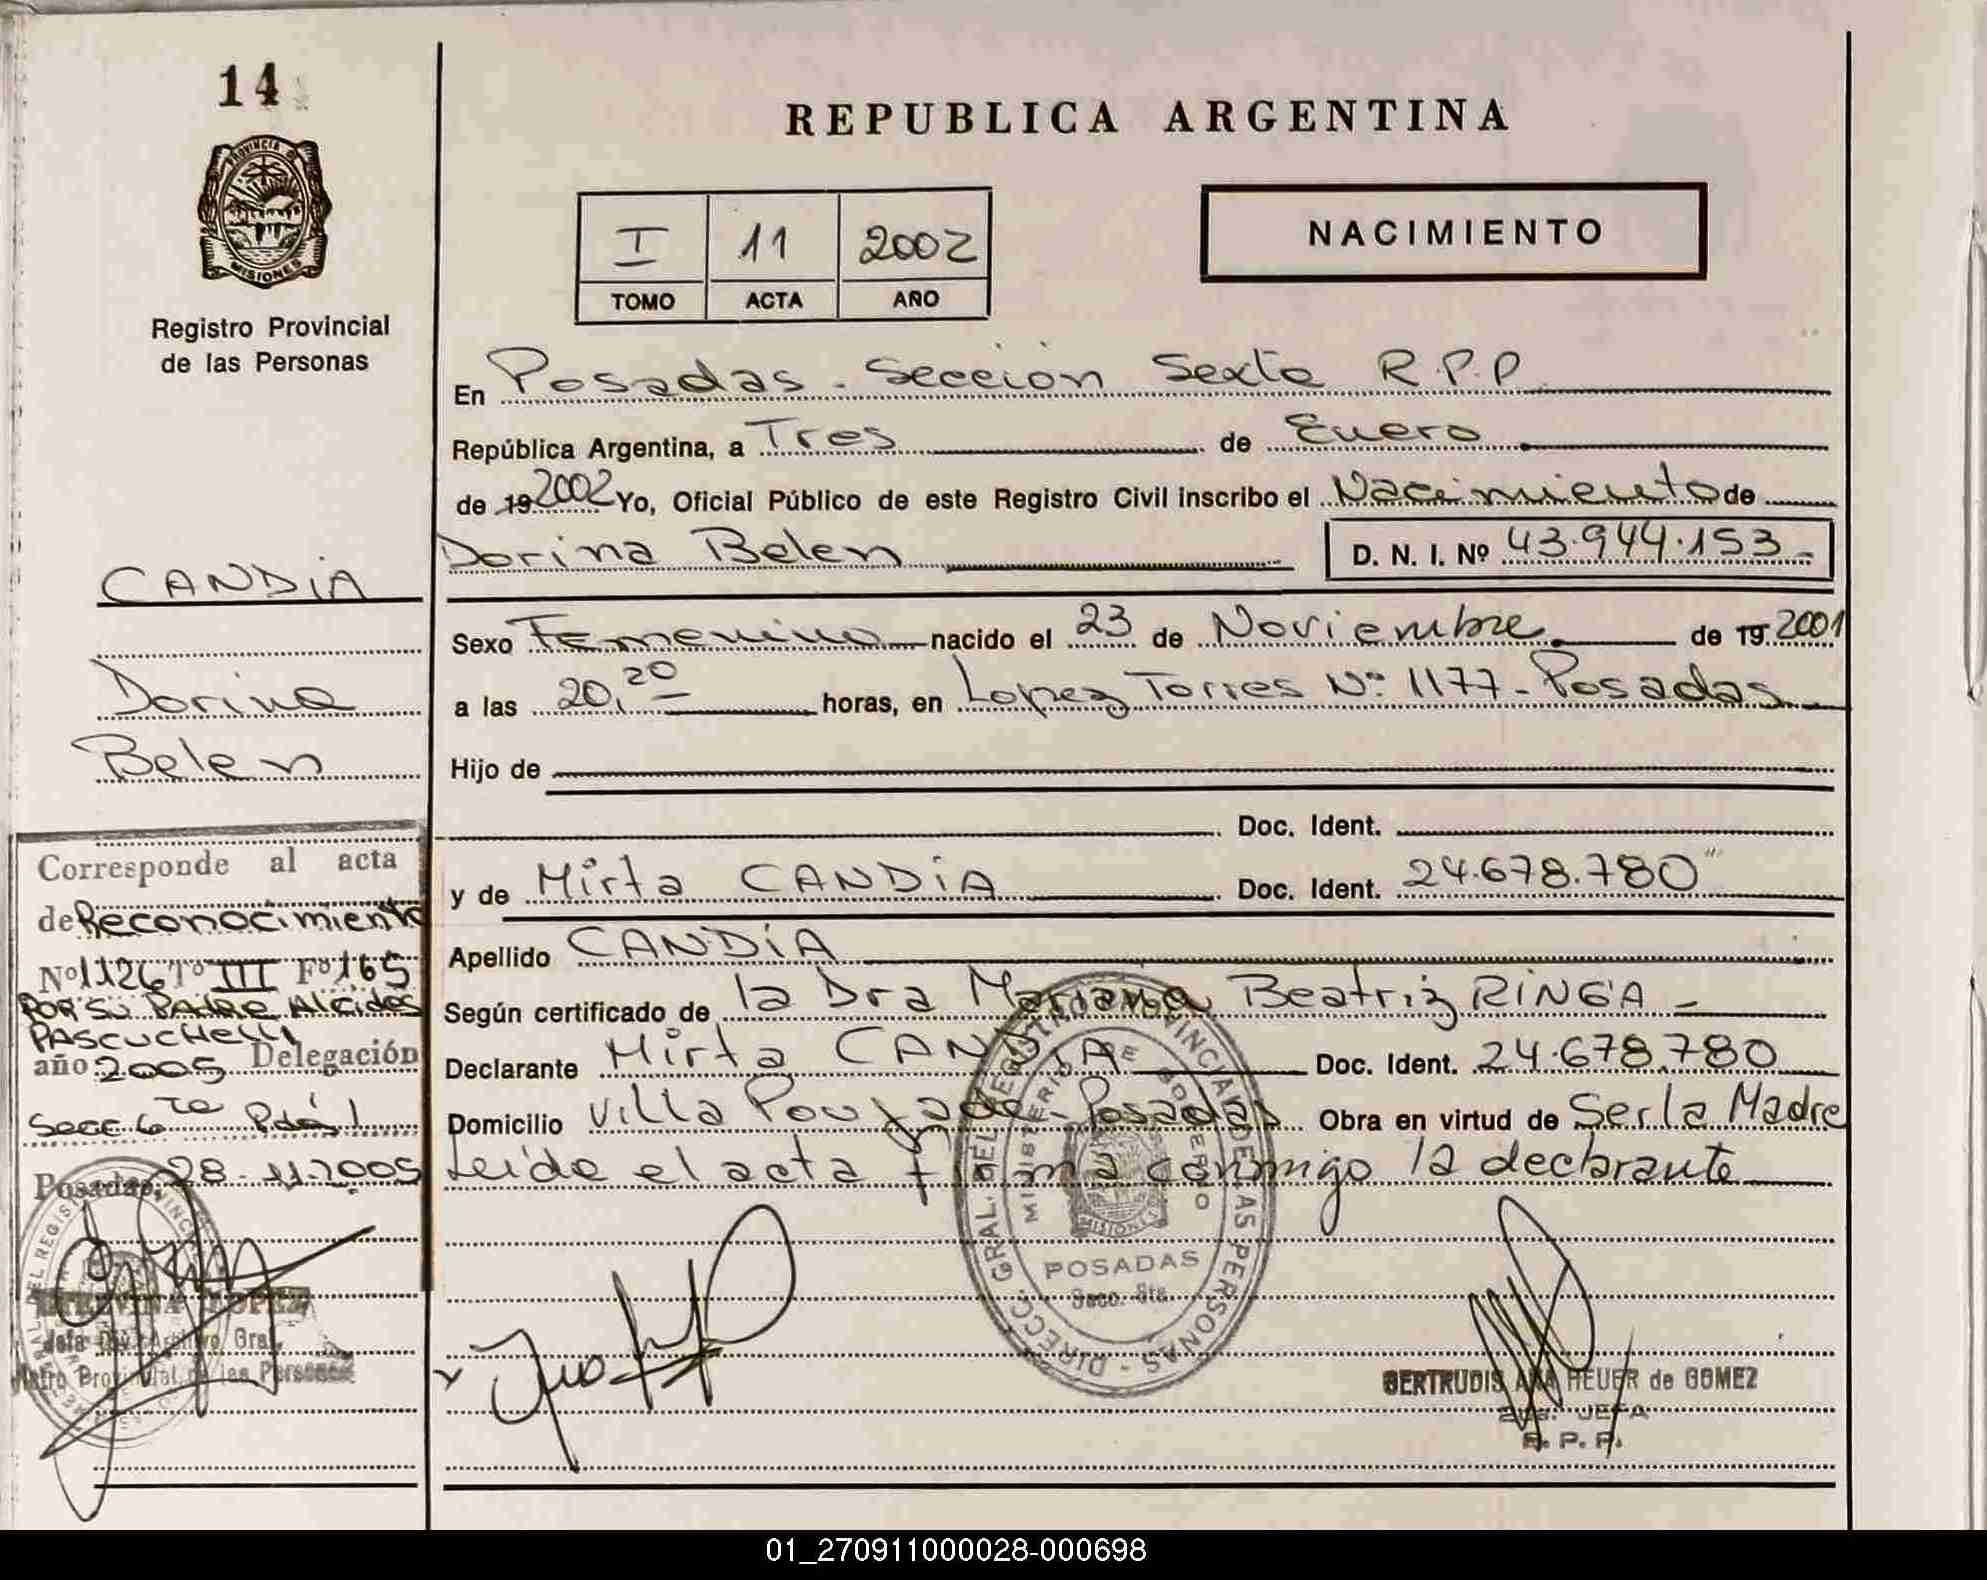 14
PROVINCIA DE
MISIONES
Registro Provincial
de las Personas
REPUBLICA ARGENTINA
I 11 2002
TOMO ACTA AÑO
NACIMIENTO
En Posadas - Sección Sexta R.P.P
República Argentina, a Tres de Enero
de 19 2002 Yo, Oficial Público de este Registro Civil inscribo el Nacimiento de
Dorina Belen D. N. I. Nº 43.944.153
Sexo Femenino nacido el 23 de Noviembre de 19 2001
a las 20,20 horas, en Lopez Torres Nº 1177 - Posadas
Hijo de
Doc. Ident.
y de Mirta CANDIA Doc. Ident. 24.678.780
Apellido CANDIA
Según certificado de la Dra Mariana Beatriz RINGA
Declarante Mirta CANDIA Doc. Ident. 24.678.780
Domicilio Villa Poujade - Posadas Obra en virtud de Ser la Madre
Leida el acta firma conmigo la declarante
CANDIA
Dorina
Belen
Corresponde al acta
de Reconocimiento
Nº 1126 Tº III Fº 165
POR SU PADRE Alcides
PASCUCHELLI
año 2005 Delegación
Secc 6ta Pdas
Posadas, 28-11-2005
LOPEZ
Jefa Div. Archivo Gral.
Provincial de las Personas
DIRECC. GRAL. DEL REGISTRO PROVINCIAL DE LAS PERSONAS
MINISTERIO DE GOBIERNO
MISIONES
POSADAS
Secc. 6ta.
GERTRUDIS ANA HEUER de GOMEZ
JEFA
R. P. P.
01_270911000028-000698